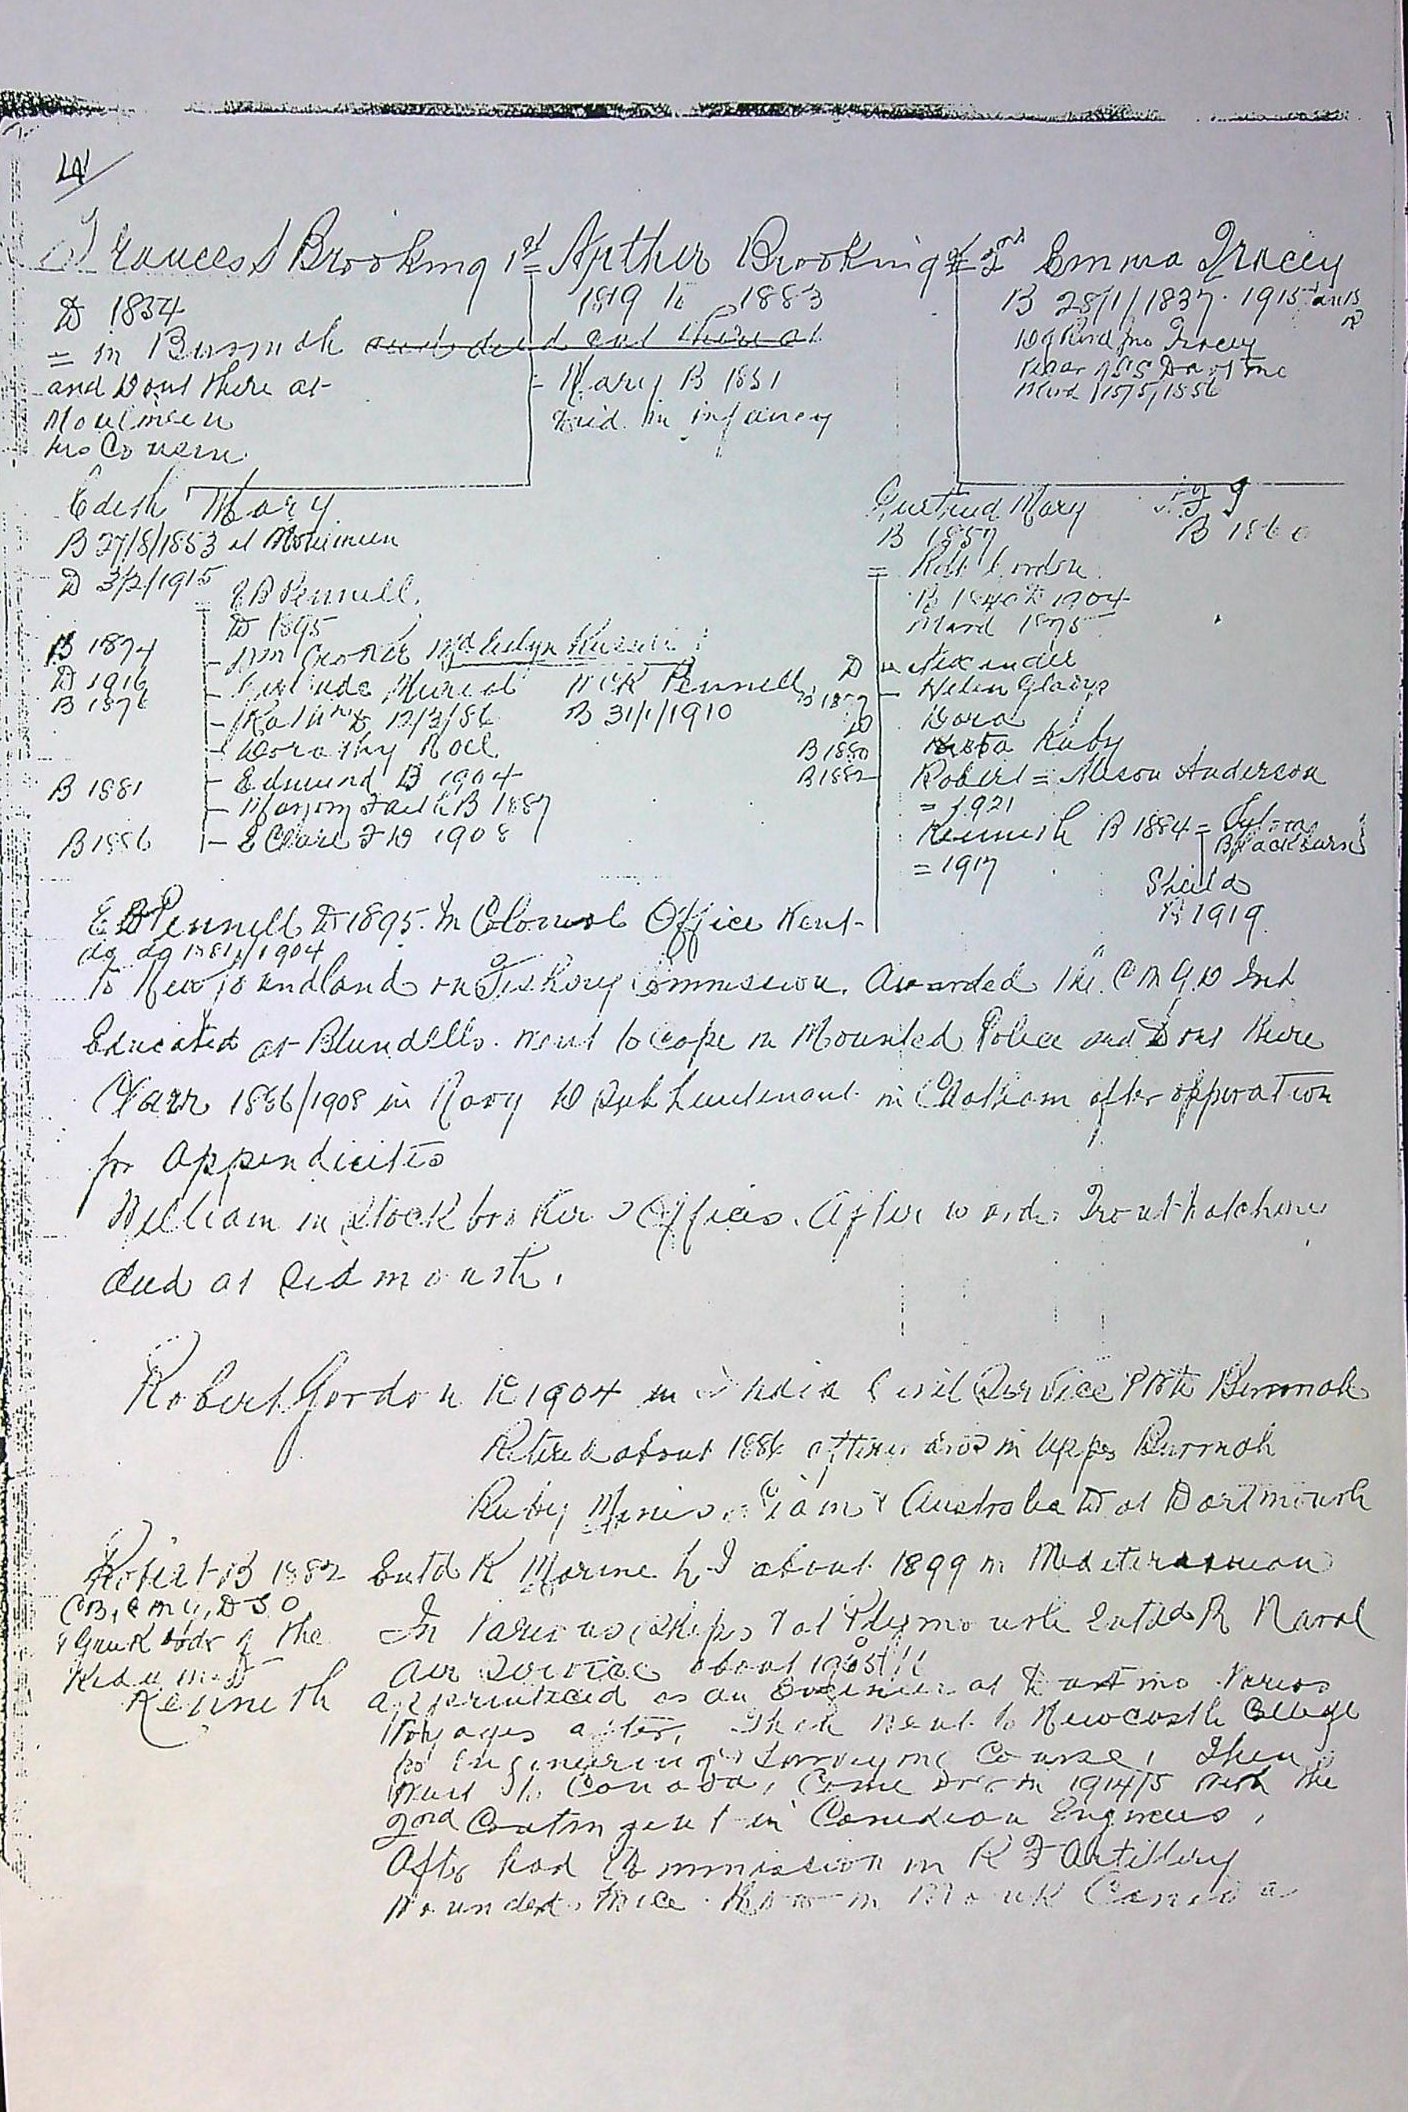 4
Frances S Brooking 1st = Arthur Brooking = 2nd Emma Tracey
D 1854
1819 to 1883
B 28/1/1837. 1915
= in Burmah
and D out there at
Moulmein
his Cousin
- Mary B 1851
Died in infancy
D of Revd Jno Tracey
Vicar of
Mard 15/5/1856
Edith Mary
B 27/8/1853 at Moulmein
D 3/2/1915
= E B Pennell
D 1895
Gertrud Mary
B 1857
B 1860
= Robt Gordon
B 1840 D 1904
Mard 1875
B 1874
D 1916
B 1876
B 1881
B 1886
- Wm Croker
- Gertrude Muriel
- Kathn D 12/3/86
- Dorothy Noel
- Edmund D 1904
- Marjory Faith B 1887
- E Clare F D 1908
W C K Pennell
B 31/1/1910
D Alexander
B 1877 - Helen Gladys
D Dora
B 1880 Ruby
B 1882 Robert = Alison Anderson
= 1921
Kenneth B 1884 = Sylvia Blackburn
= 1917
Sheila
B 1919
E B Pennell D 1895. In Colonial Office Went
do do 1881/1904
to Newfoundland on Fishery Commission. Awarded the C M G
Educated at Blundells. went to Cape in Mounted Police and D out there
Clare 1886/1908 in Navy D Sub Lieutenant in Chatham after opperation
for Appendicitis
William in Stock brokers Offices. Afterwards Trout hatchery
died at Sidmouth.
Robert Gordon D 1904 in India Civil Service PWD Burmah
Retired about 1886 in Upper Burmah
Ruby Siam & Australia D at Dartmouth
Robert B 1882 Entd R Marine L I about 1899 in Mediterranean
CB, CMG, DSO
In various ships & at Plymouth Entd R Naval
Air Service about
Kenneth apprenticed as an Engineer at Dartmo Various
Voyages after, Then went to Newcastle College
for Engineering & Surveying Course, Then
went to Canada, Came over in 1914/5 with the
2nd Contingent in Canadian Engineers,
After had Commission in R F Artillery
Wounded twice.